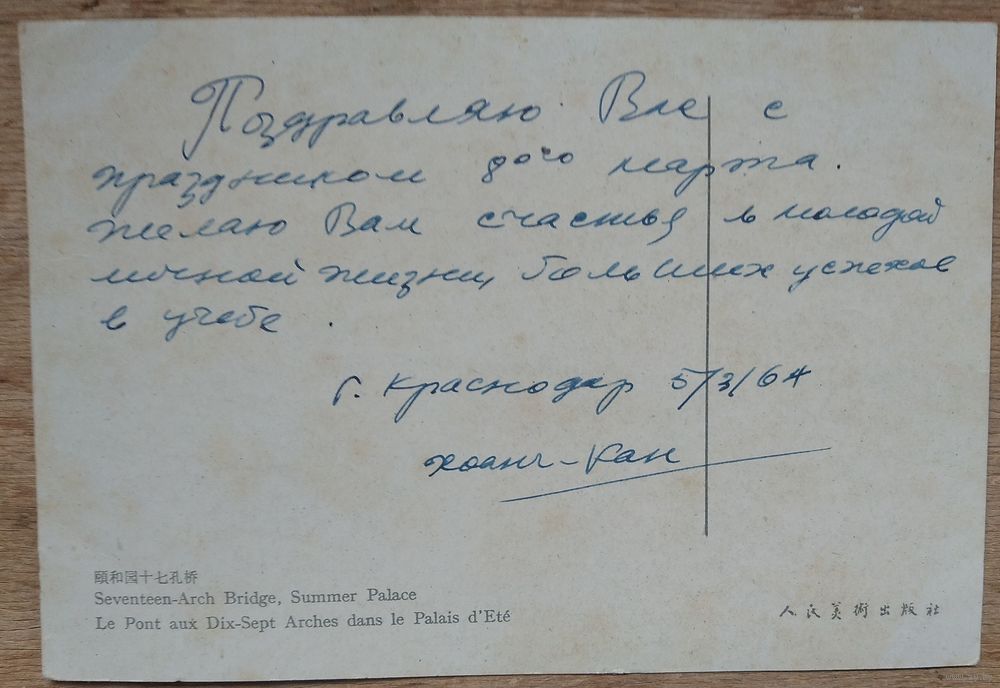 Поздравляю Вас с
праздником 8ого марта.
желаю Вам счастья в молодой
личной жизни, больших успехов
в учебе.
г. Краснодар 5/3/64
Хоанг-Кан
頤和园十七孔桥
Seventeen-Arch Bridge, Summer Palace
Le Pont aux Dix-Sept Arches dans le Palais d'Eté
人民美術出版社